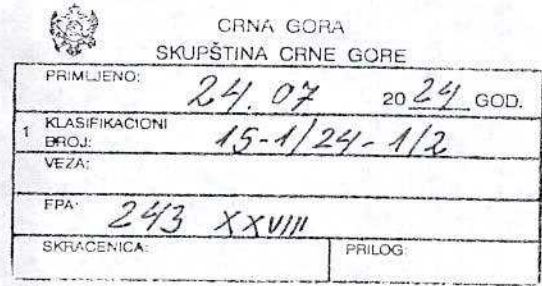 CRNA GORA
SKUPŠTINA CRNE GORE
PRIMLJENO: 24. 07 20 24 GOD.
1 KLASIFIKACIONI BROJ: 15-1/24-1/2
VEZA:
EPA: 243 XXVIII
SKRAĆENICA: PRILOG: